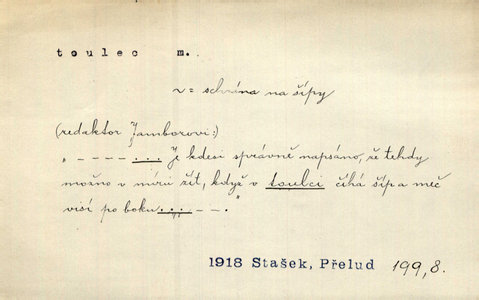 toulec m.
v = schrána na šípy
(redaktor Jamborovi:)
„ - - - - ... Je kdesi správně napsáno, že tehdy
možno v míru žít, když v toulci číhá šíp a meč
visí po boku ... - - . "
1918 Stašek, Přelud 199,8.